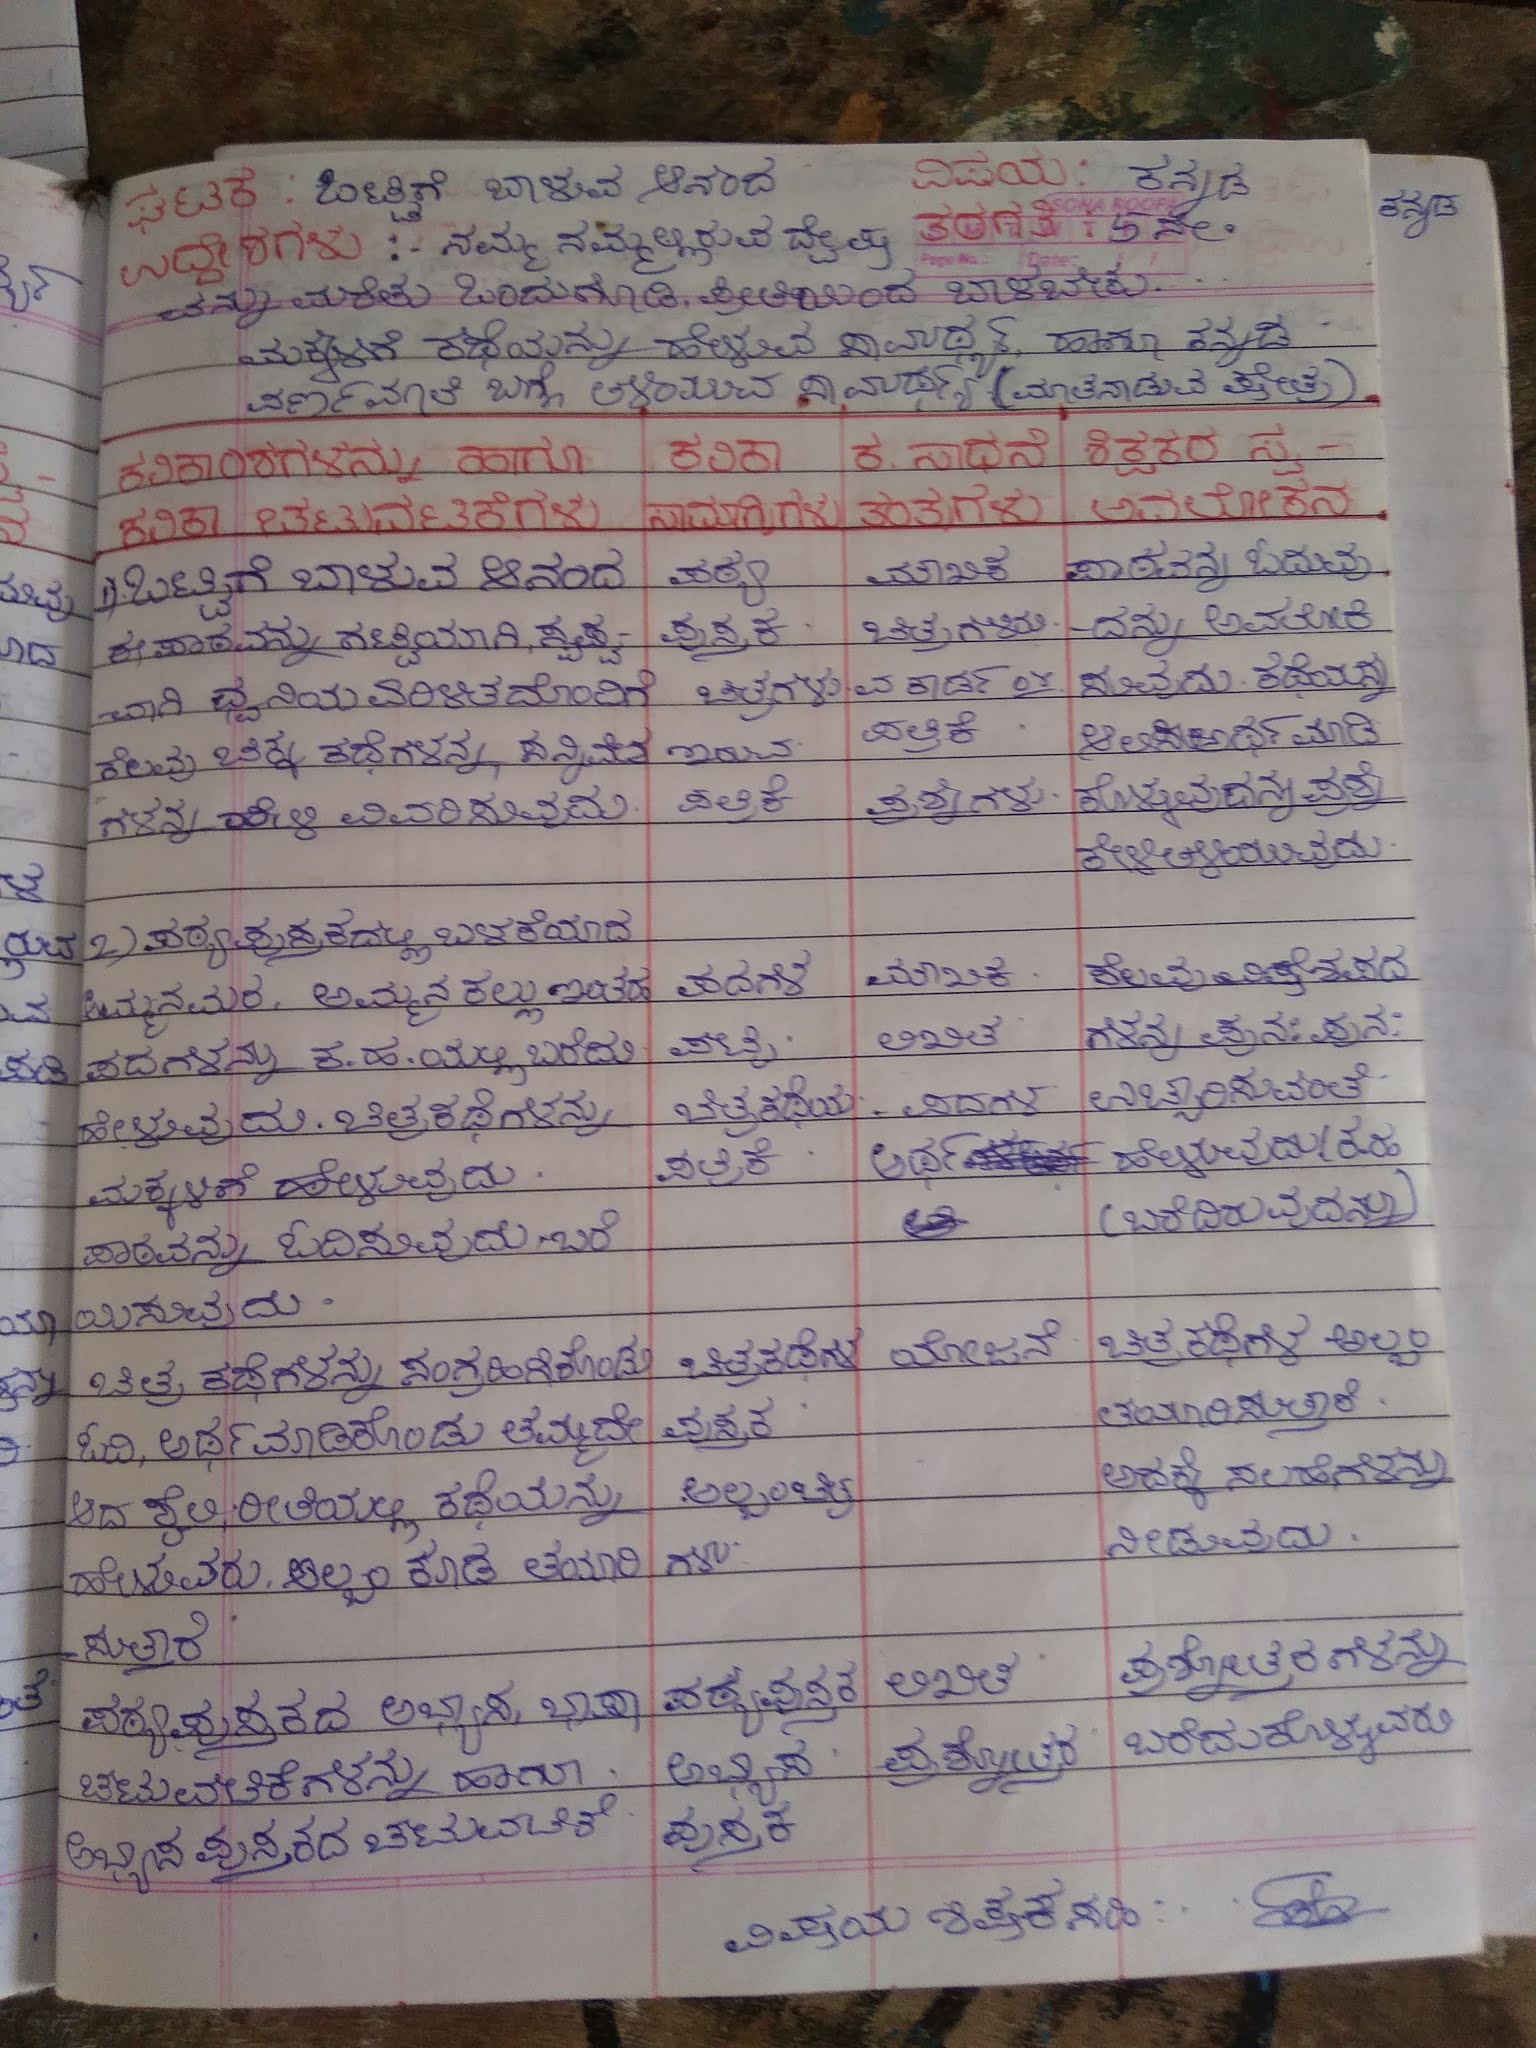 ಘಟಕ : ಒಟ್ಟಿಗೆ ಬಾಳುವ ಆನಂದ ವಿಷಯ: ಕನ್ನಡ
ಉದ್ದೇಶಗಳು :- ನಮ್ಮ ನಮ್ಮಲ್ಲಿರುವ ದ್ವೇಷ ತರಗತಿ : 5 ನೇ.
ವನ್ನು ಮರೆತು ಒಂದುಗೂಡಿ, ಪ್ರೀತಿಯಿಂದ ಬಾಳಬೇಕು.
ಮಕ್ಕಳಿಗೆ ಕಥೆಯನ್ನು ಹೇಳುವ ಸಾಮರ್ಥ್ಯ, ಹಾಗೂ ಕನ್ನಡ
ವರ್ಣಮಾಲೆ ಬಗ್ಗೆ ಅಳಿಯುವ ಸಾಮರ್ಥ್ಯ (ಮಾತನಾಡುವ ಕ್ಷೇತ್ರ)
ಕಲಿಕಾಂಶಗಳನ್ನು ಹಾಗೂ ಕಲಿಕಾ ಕ. ಸಾಧನೆ ಶಿಕ್ಷಕರ ಸ್ವ -
ಕಲಿಕಾ ಚಟುವಟಿಕೆಗಳು ಸಾಮಾಗ್ರಿಗಳು ತಂತ್ರಗಳು ಅವಲೋಕನ
1) ಒಟ್ಟಿಗೆ ಬಾಳುವ ಆನಂದ ಪಠ್ಯ ಮೌಖಿಕ ಪಾಠವನ್ನು ಓದುವು
ಈ ಪಾಠವನ್ನು ಗಟ್ಟಿಯಾಗಿ, ಸ್ಪಷ್ಟ- ಪುಸ್ತಕ ಚಿತ್ರಗಳು. -ದನ್ನು ಅವಲೋಕಿ
-ವಾಗಿ ಧ್ವನಿಯ ಏರಿಳಿತದೊಂದಿಗೆ ಚಿತ್ರಗಳು ಸುವುದು. ಕಥೆಯನ್ನು
ಕೆಲವು ಚಿಕ್ಕ ಕಥೆಗಳನ್ನು ಸನ್ನಿವೇಶ ಇರುವ ಪತ್ರಿಕೆ ಆಲಿಸಿ ಅರ್ಥಮಾಡಿ
ಗಳನ್ನು ಹೇಳಿ ವಿವರಿಸುವುದು. ಪತ್ರಿಕೆ ಪ್ರಶ್ನೆಗಳು. ಕೊಳ್ಳುವುದನ್ನು ಪ್ರಶ್ನೆ
ಕೇಳಿ ಅಳಿಯುವುದು.
2) ಪಠ್ಯಪುಸ್ತಕದಲ್ಲಿ ಬಳಕೆಯಾದ
ಅಮ್ಮನಮರ, ಅಮ್ಮನ ಕಲ್ಲು ಇಂತಹ ಪದಗಳ ಮೌಖಿಕ. ಕೆಲವು ವಿಶೇಷಪದ
ಪದಗಳನ್ನು ಕ.ಹ.ಯಲ್ಲಿ ಬರೆದು ಪಟ್ಟಿ. ಲಿಖಿತ ಗಳನ್ನು ಪುನಃ ಪುನಃ
ಹೇಳುವುದು. ಚಿತ್ರಕಥೆಗಳನ್ನು ಚಿತ್ರಕಥೆಯ - ಪದಗಳ ಉಚ್ಚಾರಿಸುವಂತೆ
ಮಕ್ಕಳಿಗೆ ಹೇಳುವುದು. ಪತ್ರಿಕೆ. ಅರ್ಥ ಹೇಳುವುದು (ಕಹ
ಪಾಠವನ್ನು ಓದಿಸುವುದು-ಬರೆ (ಬರೆದಿರುವುದನ್ನು)
ಯಿಸುವುದು.
ಚಿತ್ರ ಕಥೆಗಳನ್ನು ಸಂಗ್ರಹಿಸಿಕೊಂಡು ಚಿತ್ರಕಥೆಗಳ ಯೋಜನೆ ಚಿತ್ರಕಥೆಗಳ ಅಲ್ಬಂ
ಓದಿ, ಅರ್ಥಮಾಡಿಕೊಂಡು ತಮ್ಮದೇ ಪುಸ್ತಕ ತಯಾರಿಸುತ್ತಾರೆ.
ಆದ ಶೈಲಿ, ರೀತಿಯಲ್ಲಿ ಕಥೆಯನ್ನು ಅಲ್ಬಂ ಚಿತ್ರ ಅದಕ್ಕೆ ಸಲಹೆಗಳನ್ನು
ಹೇಳುವರು. ಅಲ್ಬಂ ಕೂಡ ತಯಾರಿ ಗಳು. ನೀಡುವುದು.
-ಸುತ್ತಾರೆ
ಪಠ್ಯಪುಸ್ತಕದ ಅಭ್ಯಾಸ, ಭಾಷಾ ಪಠ್ಯಪುಸ್ತಕ ಲಿಖಿತ ಪ್ರಶ್ನೋತ್ತರಗಳನ್ನು
ಚಟುವಟಿಕೆಗಳನ್ನು ಹಾಗೂ. ಅಭ್ಯಾಸ ಪ್ರಶ್ನೋತ್ತರ ಬರೆದುಕೊಳ್ಳುವರು
ಅಭ್ಯಾಸ ಪುಸ್ತಕದ ಚಟುವಟಿಕೆ ಪುಸ್ತಕ
ವಿಷಯ ಶಿಕ್ಷಕ ಸಹಿ :
ಕನ್ನಡ